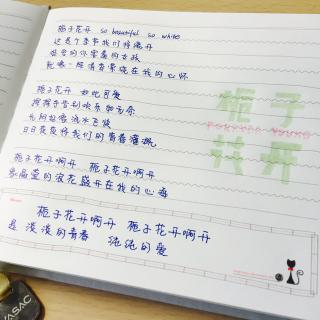 栀子花开 so beautiful so white
这是个季节我们将离开
难舍的你害羞的女孩
就像一阵清香萦绕在我的心怀
栀子花开 如此可爱
挥挥手告别欢乐和无奈
光阴好像流水飞快
日日夜夜将我们的青春灌溉
栀子花开啊开 栀子花开啊开
像晶莹的浪花盛开在我的心海
栀子花开啊开 栀子花开啊开
是 淡淡的青春 纯纯的爱
栀子
FOREVER YOUNG
花开